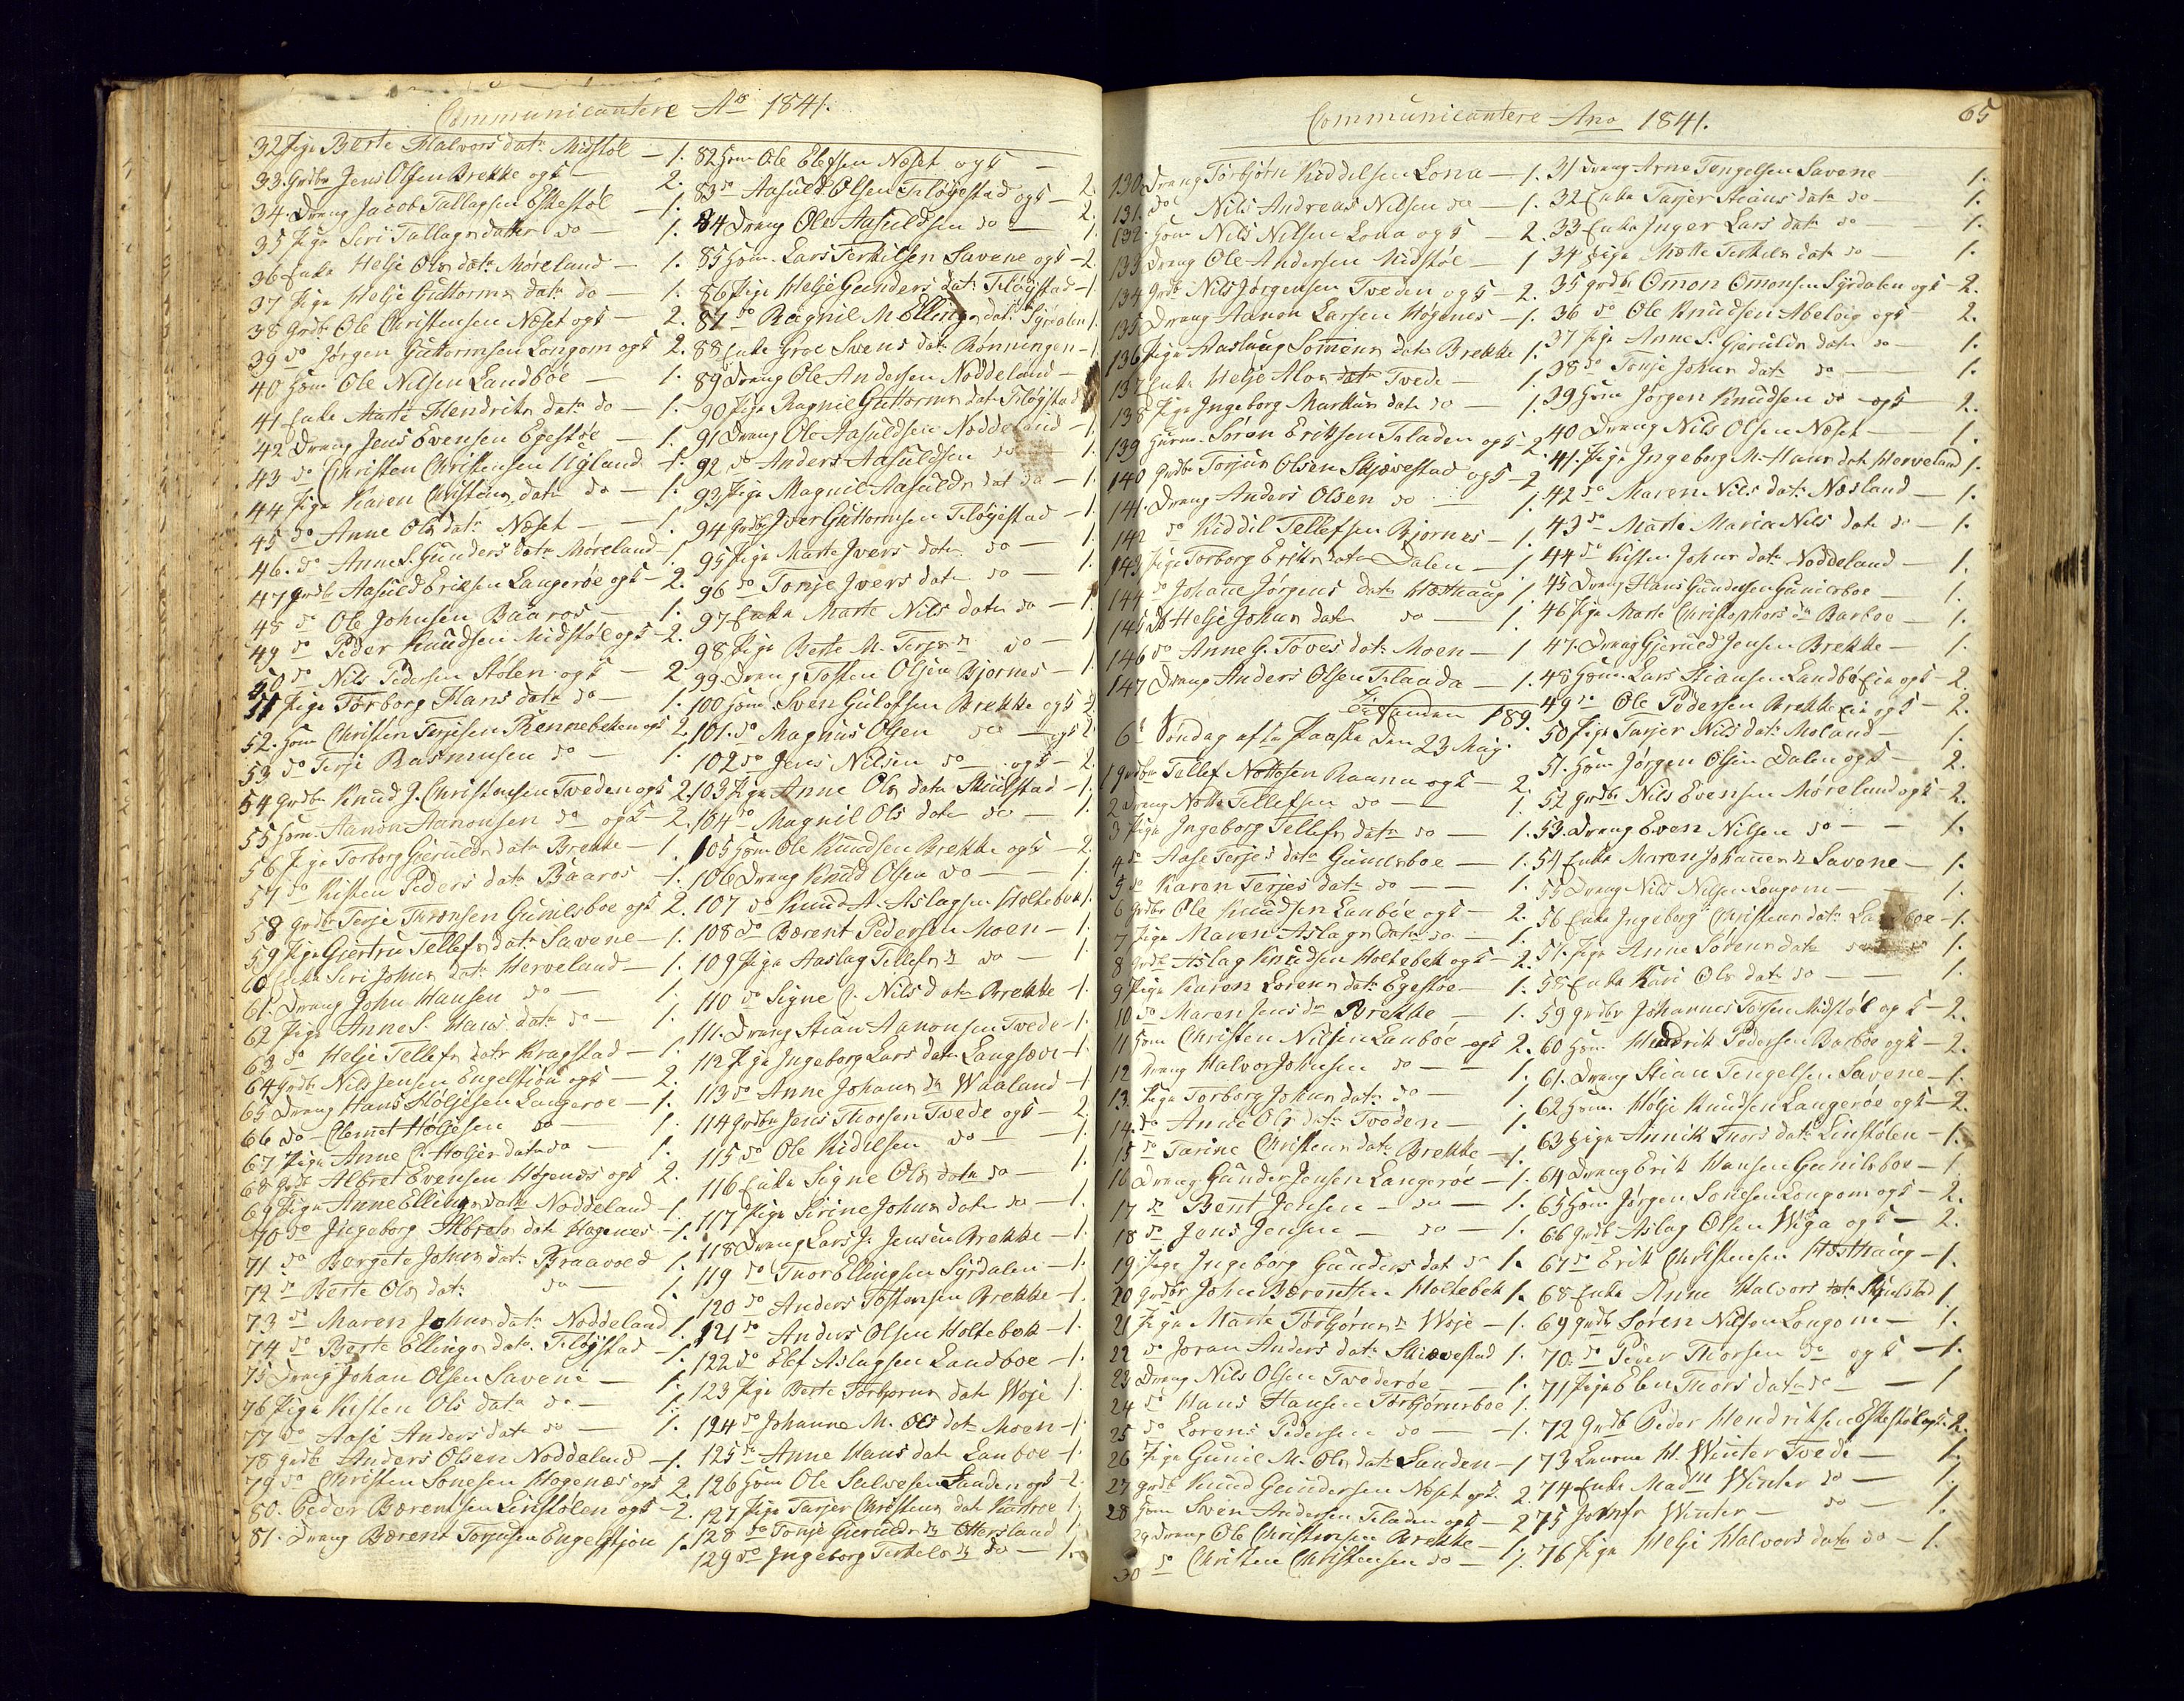 Communicantere Ao 1841.
32 Pige Berte Halvors datr Midstøl — 1.
33. Grdbr Jens Olsen Brekke ogs — 2.
34. Dreng Jacob Tallagsen Eskestøl — 1.
35 Pige Siri Tallags datter do — 1.
36 Enke Helje Ols datr Møreland — 1.
37 Pige Helje Guttorms datr do — 1.
38 Grdb Ole Christensen Næset ogs — 2.
39 do Jørgen Guttormsen Longom ogs 2.
40 Hsm Ole Nilsen Landbøe — 1.
41 Enke Marte Hendriks datr do — 1.
42 Dreng Jens Evensen Egestøe — 1.
43 do Christen Christensen Ugland 1.
44 Pige Karen Christens datr do — 1.
45 do Anne Ols datr Næset — 1.
46. do Anne S. Gunders datr Møreland — 1.
47 grdb Aasuld Eriksen Langerøe ogs — 2.
48 do Ole Johnsen Baaros — 1.
49 do Peder Knudsen Midstøl ogs — 2.
50 do Nils Pedersen Stølen ogs — 2.
51 Pige Torborg Hans datr do — 1.
52. Hsm Christen Terjesen Rennebekken ogs 2.
53 do Terje Rasmusen do — 1.
54 Grdbr Knud J. Christensen Tveden ogs 2.
55 Hsm. Aanon Aanonsen do ogs — 2.
56 Pige Torborg Gjerulds datr Brekke — 1.
57 do Kisten Peders datr Baaros — 1.
58 Grdbr Terje Thronsen Gunilsboe ogs 2.
59 Pige Gjertru Tellefs datr Savene — 1.
60 Enke Siri Johns datr Herveland — 1.
61. Dreng John Hansen do — 1.
62 Pige Anne S. Hans datr do — 1.
63 do Helje Tellefs datr Kragstad — 1.
64 Grdbr Nils Jensen Engelstjøn ogs — 2.
65 Dreng Hans Høljesen Langerøe — 1.
66 do Clemet Høljesen do — 1.
67 Pige Anne C. Høljes datr do — 1.
68 Grdb Albret Evensen Høgenes ogs 2.
69 Pige Anne Ellings datr Noddeland — 1.
70 do Ingeborg Albrets datr Høgenes — 1.
71 do Børgete Johns datr Braavoed 1.
72 do Berte Ols datr do — 1.
73 do Maren Johns datr Noddeland 1.
74 do Berte Ellings datr Fløystad — 1.
75 Dreng Johan Olsen Savene — 1.
76 Pige Kisten Ols datr do — 1.
77 do Aase Anders datr do — 1.
78 grdb Anders Olsen Noddeland — 1.
79 do Christen Sonesen Høgenæs ogs 2.
80. Peder Bærentsen Linstølen ogs — 2.
81. Dreng Bærent Torjusen Engelstjøn 1.
82 Hsm Ole Elefsen Næset ogs —
83 do Aasuld Olsen Fløyestad ogs — 2.
84 Dreng Ole Aasuldsen do — 1.
85 Hsm. Lars Terkilsen Savene ogs — 2.
86 Pige Helje Gunders datr Fløystad — 1.
87 do Ragnil M. Ellings datr Syrdalen 1.
88 Enke Groe Svens datr Rønningen — 1.
89 Dreng Ole Andersen Noddeland —
90 Pige Ragnil Guttorms datr Fløystad
91 Dreng Ole Aasuldsen Noddeland — 1.
92 do Anders Aasuldsen do 1.
93 Pige Magnil Aasulds dat do — 1.
94 Grdbr Iver Guttormsen Fløyestad — 1.
95 Pige Marte Ivers datr do — 1.
96 do Tonje Ivers datr do — 1.
97 Enke Marte Nils datr do — 1.
98 Pige Berte M. do — 1.
99. Dreng Tosten Olsen Bjornes — 1.
100 Hsm. Sven Gulofsen Brekke ogs 2.
101. do Magnus Olsen do — ogs 2.
102 do Jens Nilsen do — ogs — 2.
103 Pige Anne Ols datr Skiulstad — 1.
104 do Magnil Ols datr do — 1.
105 Hsm Ole Knudsen Brekke ogs — 2.
106 Dreng Knud Olsen do — 1.
107 do Knud A. Aslagsen Holtebek 1.
108 do Bærent Pedersen Moen — 1.
109 Pige Aaslag Tellefs dr do — 1.
110 do Signe C. Nils datr Brekke — 1.
111. Dreng Stian Aanonsen Tvede — 1.
112 Pige Ingeborg Lars datr Langsæve — 1.
113 do Anne Johans dr Waaland — 1.
114 Grdbr Jens Thorsen Tvede ogs — 2.
115 do Ole Kidilsen do — 1.
116 Enke Signe Ols datr do — 1.
117 Pige Sirine Johns datr do — 1.
118 Dreng Lars J. Jensen Brekke — 1.
119 do Thor Ellingsen Syrdalen — 1.
120 do Anders Tostensen Brekke — 1.
121 do Anders Olsen Holtebek — 1.
122 do Elef Aslagsen Landboe — 1.
123 Pige Berte Torbjorns datr Woje 1.
124 do Johanne M. Ols datr Moen — 1.
125 do Anne Hans datr Lanboe — 1.
126 Hsm Ole Salvesen Sanden ogs — 2.
127 Pige Tarjer Christens dat 1.
128 do Tonje Gierulds dr Ottersland 1.
129 do Ingeborg Terkels dr do — 1.
Communicantere Ano 1841.
65
130 Dreng Torbjørn Kiddelsen Lona — 1.
131. do Nils Andreas Nilsen do — 1.
132. Hsm Nils Nilsen Lona ogs — 2.
133 Dreng Ole Andersen Midstøl — 1
134 Grdb Nils Jørgensen Tveden ogs — 2.
135 Dreng Aanon Larsen Høgenes — 1.
136 Pige Aaslaug Sørrens datr Brekke 1.
137 Enke Helje Alos datr Tvede — 1.
138 Pige Ingeborg Markus datr do — 1.
139 Hsm. Søren Eriksen Fladen ogs — 2.
140 Grdbr Torjus Olsen Skjævestad ogs — 2
141. Dreng Anders Olsen do 1.
142 do Kiddil Tellefsen Bjornes — 1.
143 Pige Torborg Eriks datr Dalen — 1
144 do Johane Jørgens datr Høsthaug 1.
145 do Helje Johns datr do — 1.
146 do Anne G. Toves datr Moen — 1
147 Dreng Anders Olsen Flaada — 1.
Tilsammen 189.
6te Søndag efter Paaske den 23 Maj.
1 Grdbr Tellef Nottosen Raanu ogs — 2.
2 Dreng Notto Tellefsen do — 1.
3 Pige Ingeborg Tellefs datr do — 1.
4 do Aase Terjes datr Gunilsboe — 1.
5 do Karen Terjes datr do — — 1.
6 Grdbr Ole Knudsen Lanbøe ogs — 2.
7 Pige Maren Aslags datr do — 1.
8 Grdb Aslag Knudsen Holtebek ogs — 2.
9 Pige Karen Lorens datr Egestøe — 1.
10 do Maren Jens dr Brekke — 1.
11 Hsm Christen Nilsen Lanbøe ogs 2.
12 Dreng Halvor Johnsen do — — 1.
13. Pige Torborg Johns datr do — 1
14. do Anne Ols datr Tveden — 1.
15 do Tarine Christens datr Brekke — 1.
16 Dreng Gunder Jensen Langerøe — 1.
17 do Bent Jensen — do — 1.
18 do Jens Jensen — do — 1.
19. Pige Ingeborg Gunders dat do 1.
20 Grdbr John Bærentsen Holtebek 1.
21 Pige Marte Torbjørns dr Woje — 1.
22 do Joran Anders datr Skiævestad 1.
23 Dreng Nils Olsen Tvederøe — 1.
24 do Hans Hansen Torbjørnsboe 1.
25 do Lorens Pedersen do — 1.
26 Pige Gunil M. Ols datr Sanden — 1
27 grdb Knud Gundersen Næset ogs. 2.
28 Hsm Sven Andersen Fladen ogs — 2
29 Dreng Ole Christensen Brekke — 1.
30 do Christen Christensen do — 1.
31 Dreng Arne Tengelsen Savene — 1.
32 Enke Tarjer Stians datr do — 1.
33 Enke Inger Lars datr do — 1.
34 Pige Mette Terkels datr do — 1.
35 grdb Omon Omonsen Syrdalen ogs — 2.
36 do Ole Knudsen Abeløig ogs — 2.
37 Pige Anne S. Gierulds datr do — 1.
38 do Tonje Johns datr do — 1.
39 Hsm Jørgen Knudsen do — ogs — 2.
40 Dreng Nils Olsen Næset — 1.
41. Pige Ingeborg M. Hans datr Herveland 1.
42 do Maren Nils datr Næsland — 1.
43 do Marte Maria Nils datr do — 1.
44 do Kisten Johns datr Noddeland — 1.
45 Dreng Hans Gundersen Gunilsboe — 1.
46 Pige Marte Christophers dr Barboe — 1.
47. Dreng Gjeruld Jensen Brekke — 1.
48 Hsm. Lars Stiansen Landbøe ogs — 2
49 do Ole Pedersen Brekke ogs — 2.
50 Pige Tarjer Nils datr Moland — 1.
51. Hsm Jørgen Olsen Dalen ogs — 2.
52 grdb Nils Evensen Møreland ogs — 2.
53. Dreng Even Nilsen do — — 1.
54 Enke Maren Johannes dr Savene — 1.
55 Dreng Nils Nilsen Longom — 1.
56 Enke Ingeborg Christens datr Landboe — 1.
57. Pige Anne Sørens datr do 1.
58 Enke Kari Ols datr do — — 1.
59 grdbr Johannes Torsen Midstøl ogs — 2.
60 Hsm Hendrik Pedersen Barbøe ogs — 2.
61. Dreng Stian Tengelsen Savene — 1.
62 Hsm. Hølje Knudsen Langerøe ogs — 2.
63 Pige Annik Thors datr Linstølen — 1.
64 Dreng Erik Hansen Gunilsboe — 1
65 Hsm Jørgen Sonesen Longom ogs — 2.
66 grdb Aslag Olsen Wiga ogs — 2.
67 do Erik Christensen Høsthaug — 1.
68 Enke Anne Halvors datr Skjulstad 1.
69 grdb Søren Nilsen Longom — 1.
70. do Peder Thorsen do ogs — 1.
71 Pige Elen Thors datr do — 1
72 Grdb Peder Hendriksen Eskestøl ogs. 2.
73 Laurne H. Winter Tvede — 1.
74 Enke Madm Winter do — 1.
75 Jomfr Winter — do — 1.
76 Pige Helje Halvors datr do — 1.